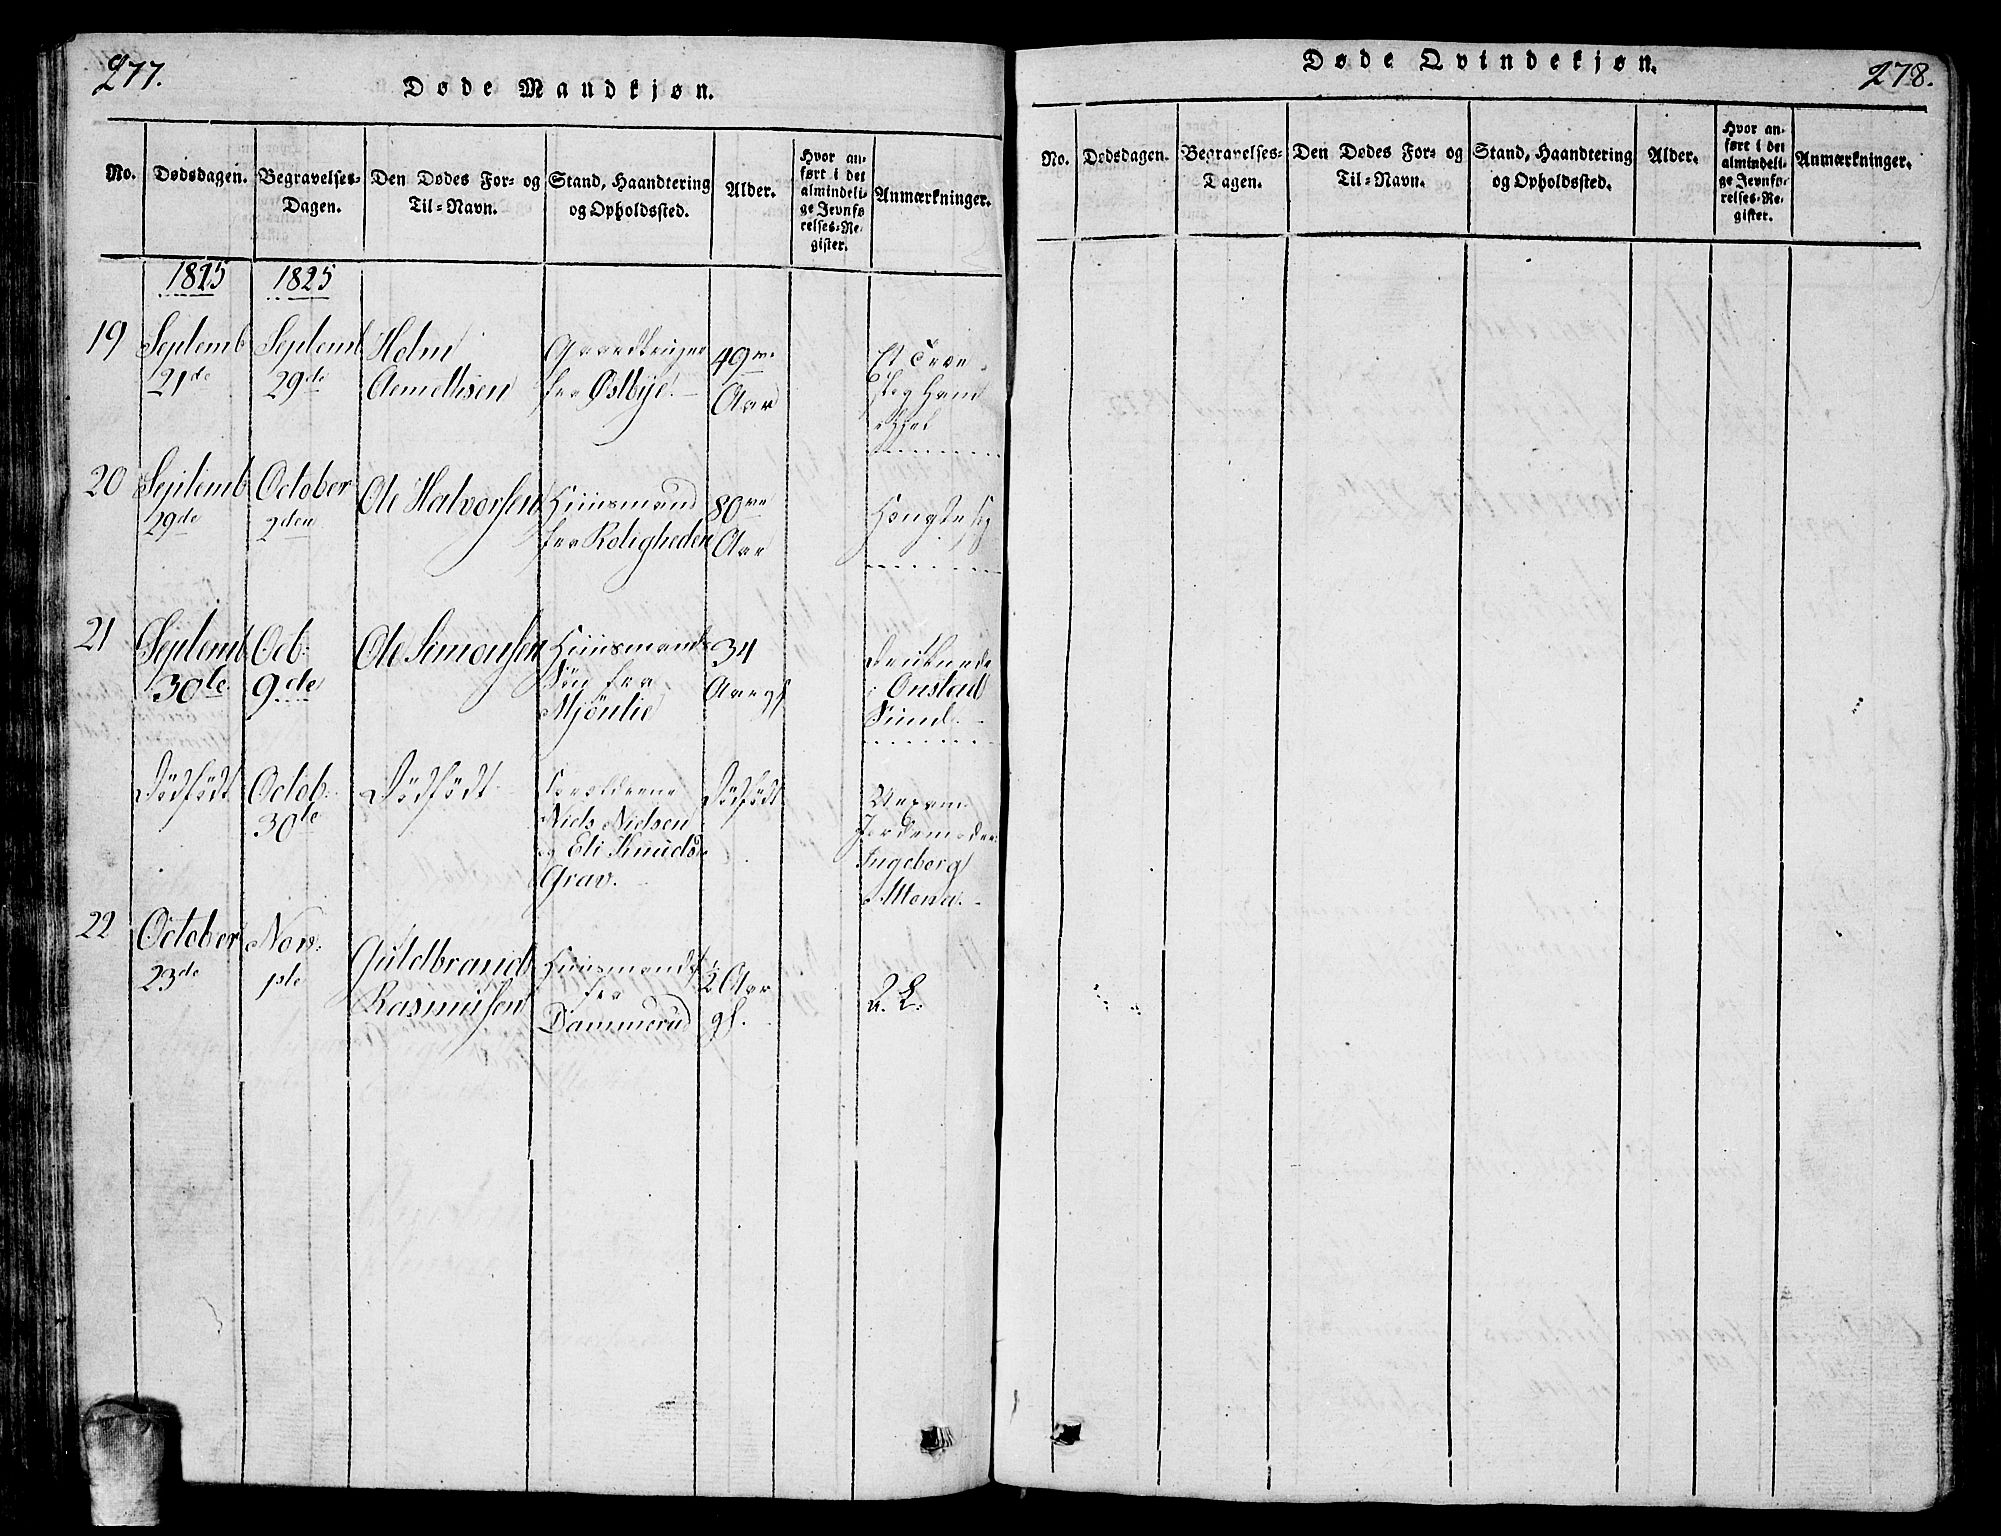 277.
Døde Mandkjøn.
No.
Dødsdagen.
Begravelses-
Dagen.
Den Dødes For- og
Til-Navn.
Stand, Haandtering
og Opholdssted.
Alder.
Hvor an-
ført i det
almindeli-
ge Jevnfø
relses-Re-
gister.
Anmærkninger.
1825
1825
19
Septemb
21de
Septemb
29de
Holm
Gaardbruger
fra Østbye.
49
Aar
Et
20
Septemb
29de
October
2den
Ole Halvorsen
Huusmand
fra Roligheden
80
Aar
Hængte sig
21
Septemb
30te
Octb:
9de
Ole Simonsen
Huusmands
Søn fra
Mjønlie
34
Aar gl
Druknede
i Onstad
Sund.
Dødfødt
Octob:
30te
Dødfødt
Forældrene
Niels Nielsen
og Eli Knudsd
Grav.
Dødfødt
Jordemoder
Ingeborg
22
October
23de
Nov:
1ste
Guldbrand
Rasmusen
Huusmands
fra
Dammerud
2 Aar
gl.
Døde Qvindekjøn.
278.
No.
Dødsdagen.
Begravelses-
Dagen.
Den Dødes For- og
Til-Navn.
Stand, Haandtering
og Opholdssted.
Alder.
Hvor an-
ført i det
almindeli-
ge Jevnfø-
relses-Re-
gister.
Anmærkninger.